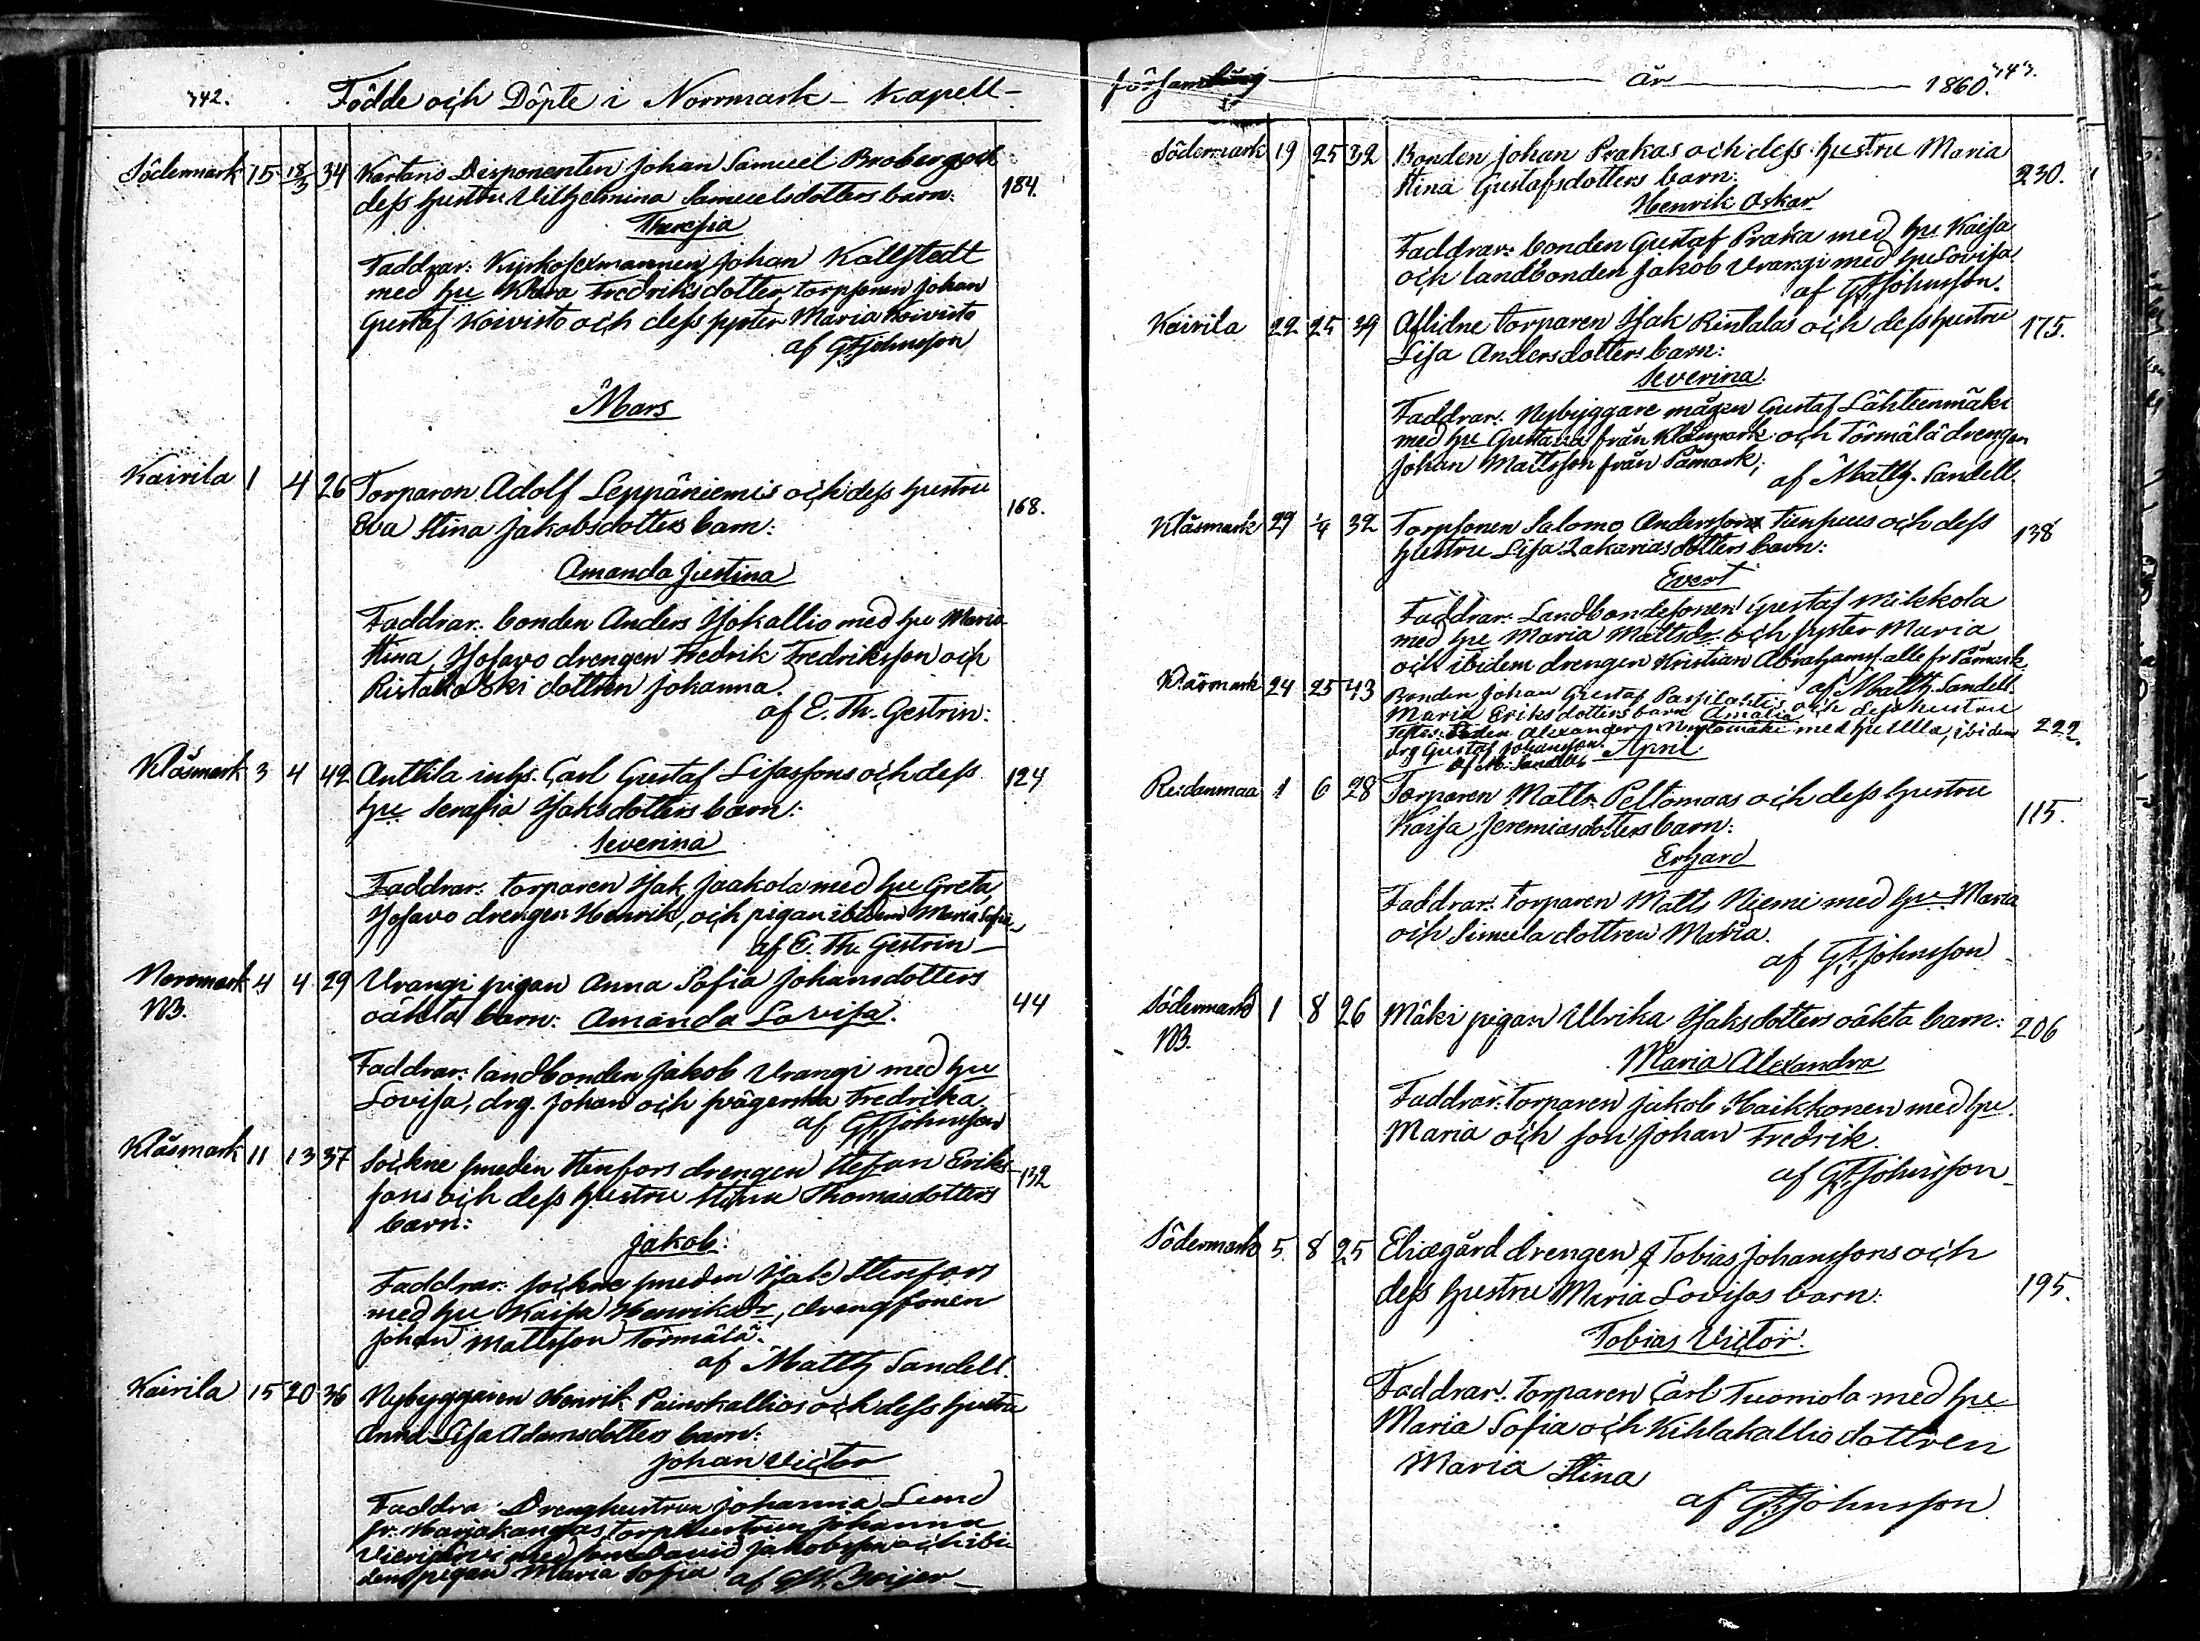 342. Födde och Döpte i Norrmark - Kapell -
Södermark 15 18/3 34 Kartano Disponenten Johan Samuel Brobergs och 184.
dess hustru Vilhelmina Samuelsdotters barn:
Theresia
Faddrar: Kyrkosexmannen Johan Kallstedt
med hu Klara Fredriksdotter, torpsonen Johan
Gustaf Koivisto och dess syster Maria Koivisto
af G. Johnsson
Mars
Kairila 1 4 26 Torparen Adolf Leppäniemis och dess hustru 168.
Eva Stina Jakobsdotters barn:
Amanda Justina
Faddrar: bonden Anders Isokallio med hu Maria
Stina, Isosavo drengen Fredrik Fredriksson och
dottren Johanna.
af E. Th. Gestrin:
Klåsmark 3 4 42 Anttila inhs. Carl Gustaf Lisassons och dess 124
hu Serafia Isaksdotters barn:
Severina
Faddrar: torparen Isak Jaakola med hu Greta,
Isosavo drengen Henrik, och pigan ibidem Maria Sofia
af E. Th. Gestrin
Norrmark 4 4 29 Vrangi pigan Anna Sofia Johansdotters 44
NB. oäkta barn: Amanda Lovisa.
Faddrar: landbonden Jakob Vrangi med hu
Lovisa, drg. Johan och svägerska Fredrika
af G. Johnsson
Klåsmark 11 13 37 Sockne smeden Stenfors drengen Stefan Eriks- 132
sons och dess hustru Stina Thomasdotters
barn:
Jakob:
Faddrar: sockne smeden Isak Stenfors
med hu Kaisa Henriksdr, drengsonen
Johan Mattsson Törmälä.
af Matth Sandell.
Kairila 15 20 36 Nybyggaren Henrik Painokallios och dess hustru
Anna Lisa Adamsdotters barn:
Johan Victor
Faddra: Drenghustrun Johanna Lund
fr. Harjakangas torphustrun Johanna
med son David Jakobsson och ibi-
dem pigan Maria Sofia af Beijer
församling år 1860. 343.
Södermark 19 25 32 Bonden Johan Prakas och dess hustru Maria 230.
Stina Gustafsdotters barn:
Henrik Oskar
Faddrar: bonden Gustaf Praka med hu Kaisa
och landbonden Jakob Vrangi med hu Lovisa
af G. Johnsson.
Kairila 22 25 39 Aflidne torparen Isak Rintalas och dess hustru 175.
Lisa Andersdotters barn:
Severina.
Faddrar: Nybyggare mågen Gustaf Lähteenmäki
med hu Gustava från Klåsmark och Törmälä drengen
Johan Mattsson från Påmark;
af Matth. Sandell.
Klåsmark 29 1/4 32 Torpsonen Salomo Andersson Tuupuus och dess 138
hustru Lisa Zakariasdotters barn:
Evert
Faddrar: Landbondesonen Gustaf Mikkola
med hu Maria Mattsdr. och syster Maria
och ibidem drengen Kristian Abrahamss. alle fr Påmark
af Matth. Sandell.
Klåsmark 24 25 43 Bonden Johan Gustaf och dess hustru
Maria Eriksdotters barn Amalia
Alexander med hu Ulla, ibidem 222.
drg Gustaf Johansson.
af M. Sandell
April
Reidanmaa 1 6 28 Torparen Matts Peltomaas och dess hustru 115.
Kaisa Jeremiasdotters barn:
Erhard
Faddrar: torparen Matts Niemi med hu. Maria
och Simula dottren Maria.
af G. Johnsson
Södermark 1 8 26 Mäki pigan Ulrika Isaksdotters oäkta barn: 206
NB.
Maria Alexandra
Faddrar: torparen Jakob Haikkonen med hu.
Maria och son Johan Fredrik.
af G. Johnsson
Södermark 5 8 25 Eliægård drengen Tobias Johanssons och
dess hustru Maria Lovisas barn: 195.
Tobias Victor.
Faddrar: Torparen Carl Tuomola med hu
Maria Sofia och Kihlakallio dottren
Maria Stina
af G. Johnsson